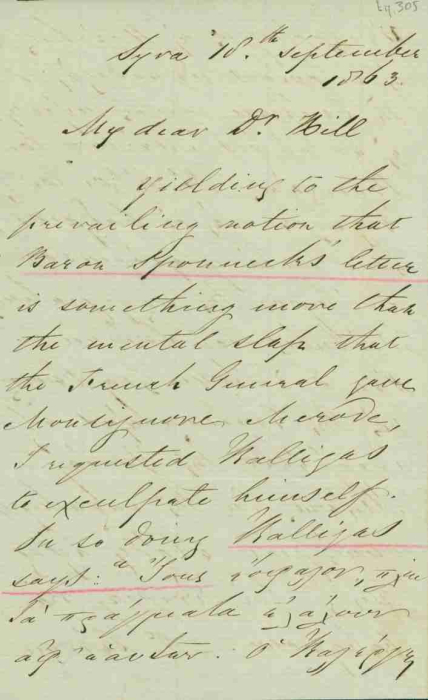 Eq. 305
Syra 18.th September
1863.
My dear Dr Hill
yielding to the
prevailing notion that
Baron Sponneck's letter
is something more than
the mental slap that
the French General gave
Monsignore Merode,
I requested Kalligas
to exculpate himself.
In so doing Kalligas
says: "Ἴσως ἔσφαλον, πλὴν
τὰ πράγματα
ἀφ' ἑαυτῶν. ὁ Καλέργης